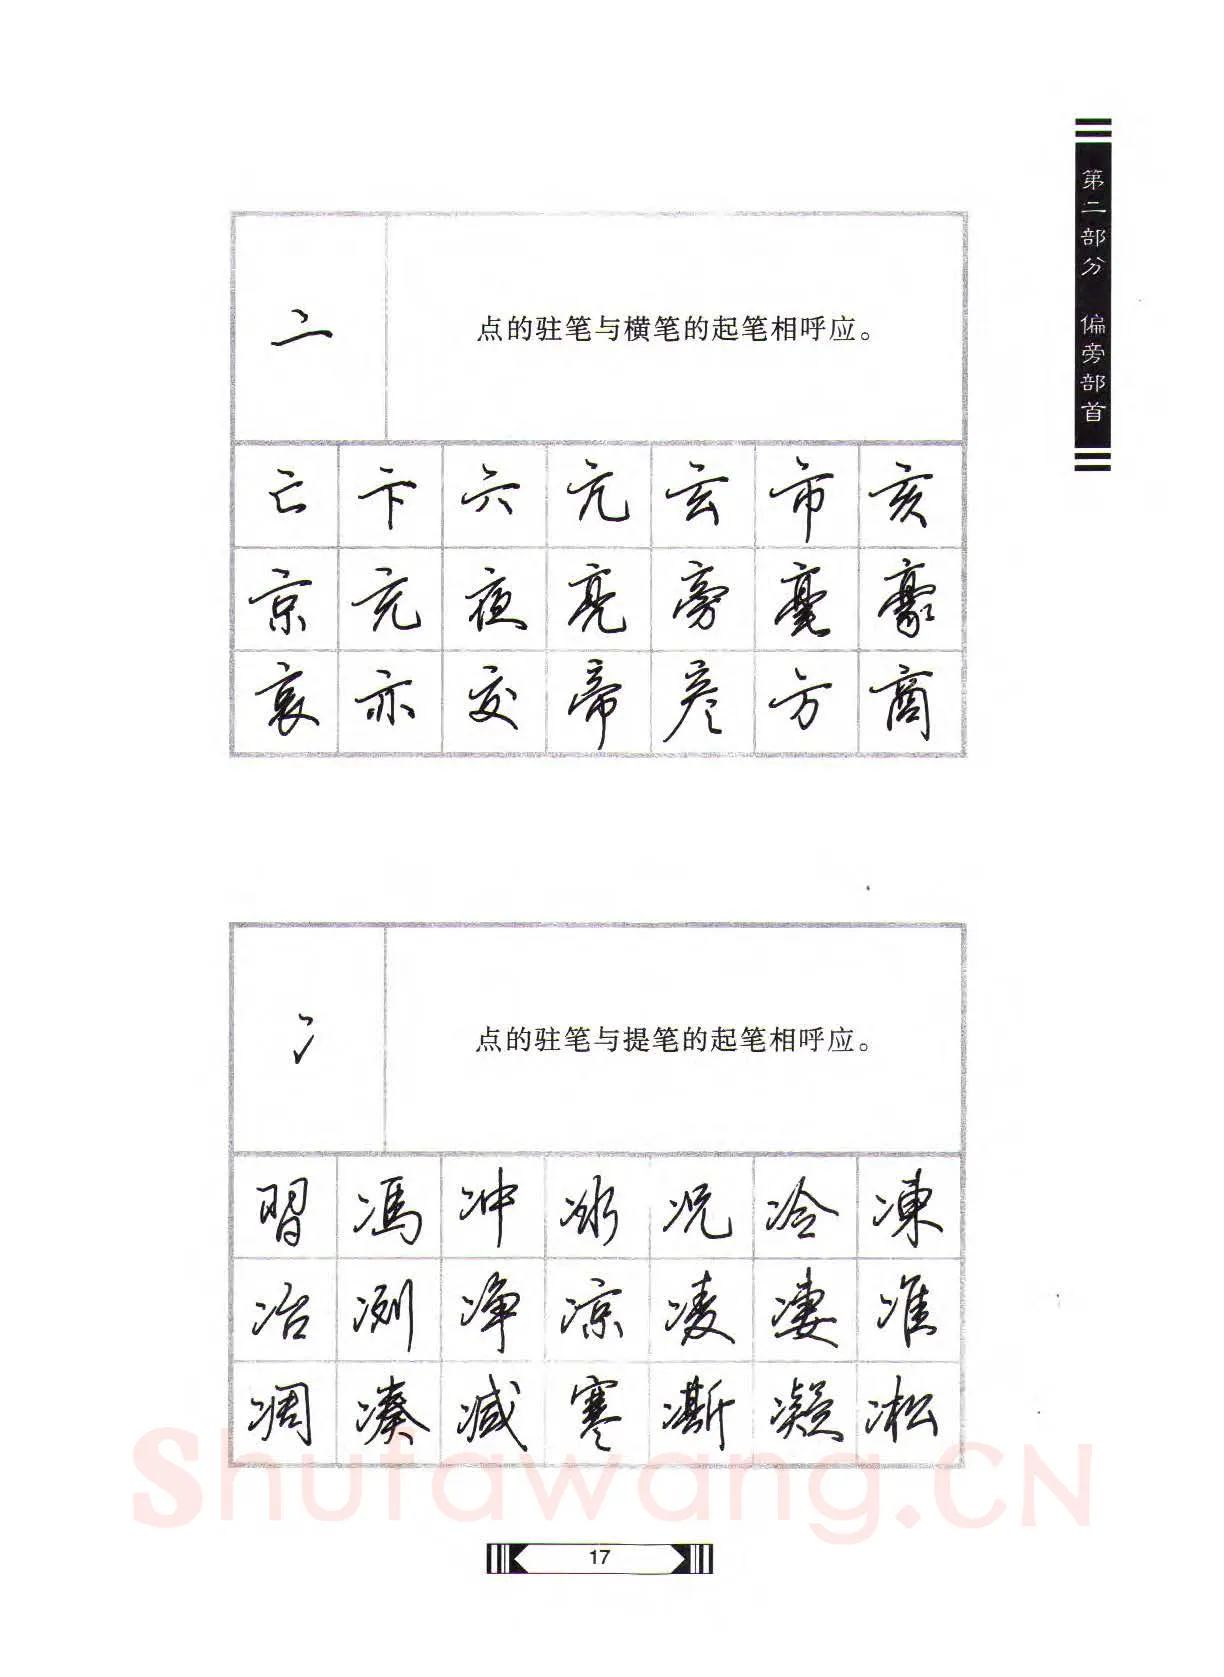 第二部分 偏旁部首
亠 点的驻笔与横笔的起笔相呼应。
亡 卞 六 亢 玄 市 亥
京 充 夜 亮 旁 毫 豪
哀 亦 交 帝 彦 方 商
冫 点的驻笔与提笔的起笔相呼应。
習 馮 冲 冰 况 冷 凍
冶 冽 净 凉 凌 凄 准
凋 凑 减 寒 凘 凝 凇
Shufawang.CN
17